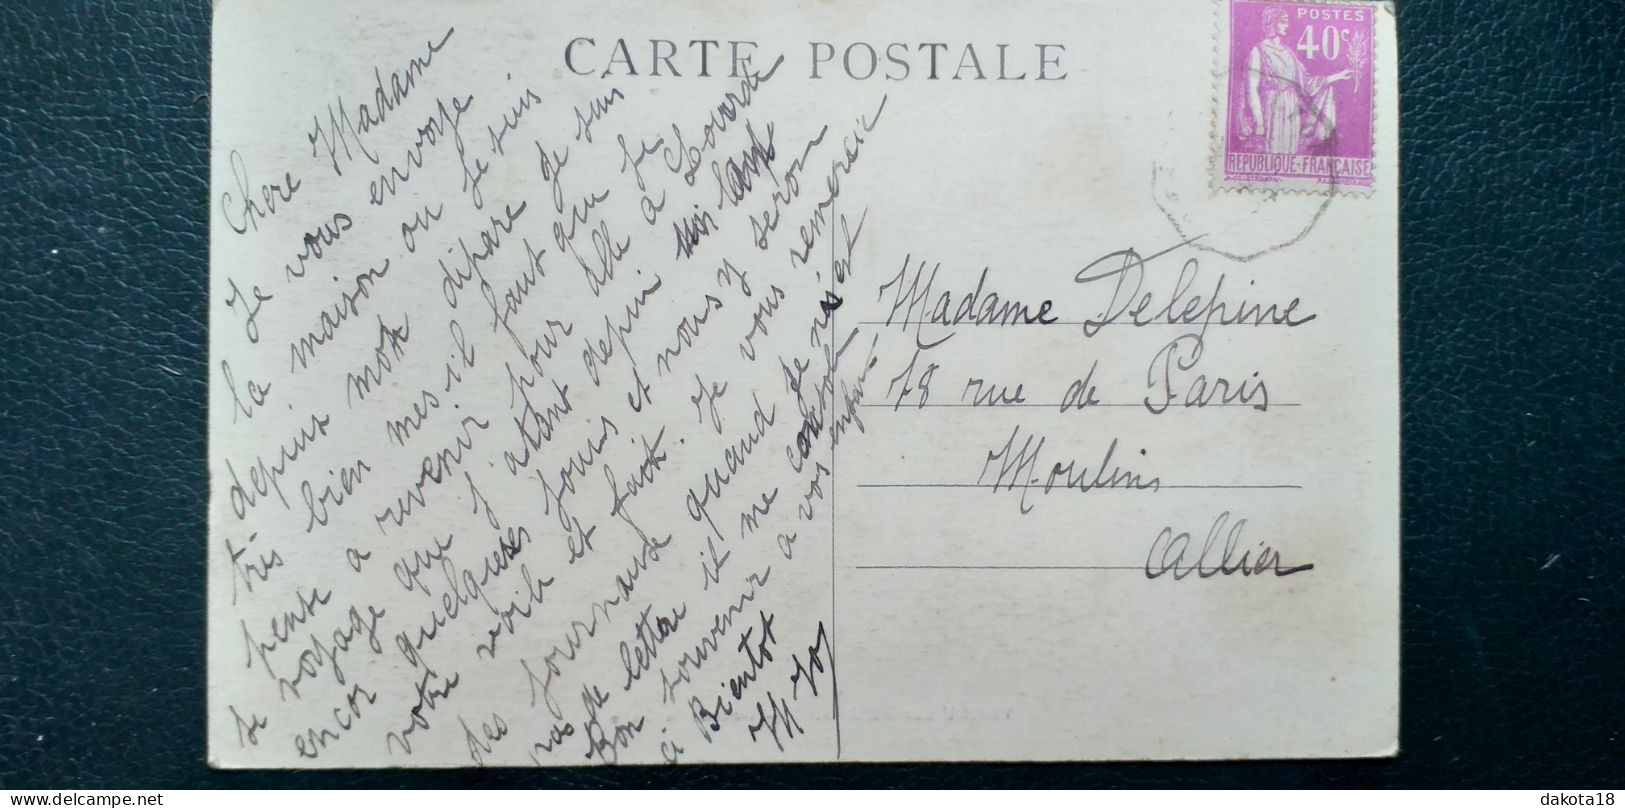 CARTE POSTALE
POSTES
40c
REPUBLIQUE-FRANCAISE
Chere Madame
Je vous envoye
la maison ou Je suis
depuis mon dipare Je suis
très bien mes il faut que Je
pense a revenir pour alle a Lourde
se voyage que j'atant depuis si
encor quelques jours et nous y seron
votre voile et fait. Je vous remercie
des journaux quand Je n'est
pas de lettre il me
Bon souvenir a vos enfans
a Bientot
Madame Delepine
78 rue de Paris
Moulins
Allier
delcampe.net
dakota18